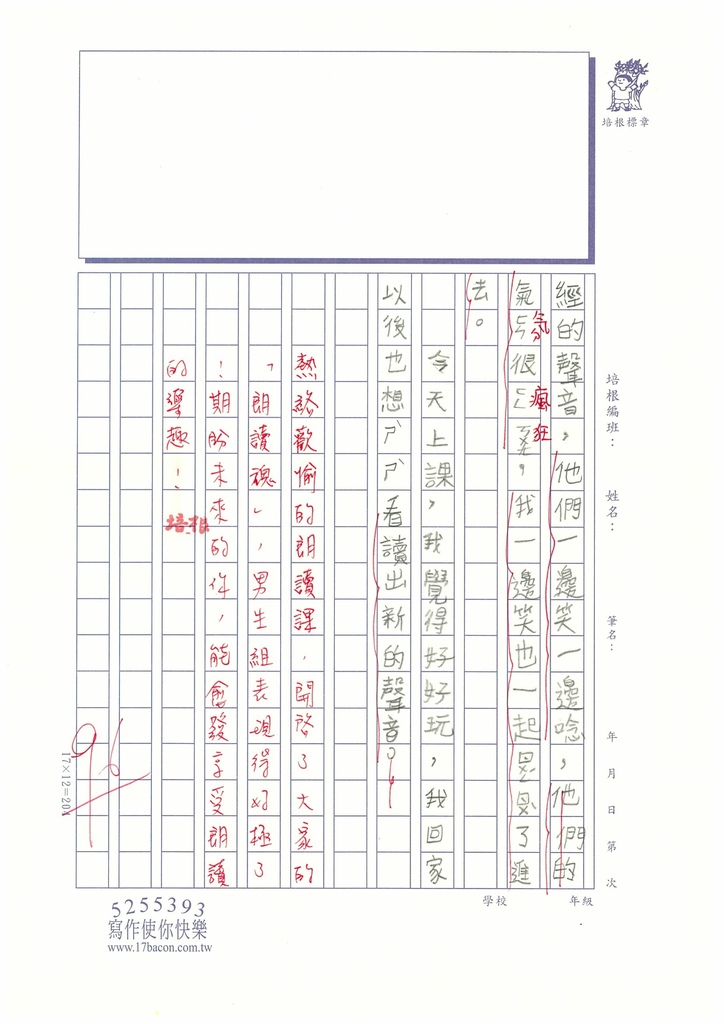 培根標章
培根編班：
姓名：
筆名：
年 月 日 第 次
經的聲音，他們一邊笑一邊唸，他們的
氣ㄈㄣ很ㄈㄥ，我一邊笑也一起ㄦ了進
氛
瘋狂
去。
今天上課，我覺得好好玩，我回家
以後也想ㄕㄕ看讀出新的聲音。
熱絡歡愉的朗讀課，開啓了大家的
「朗讀魂」，男生組表現得好極了
！期盼未來的你，能愈發享受朗讀
的樂趣！
培根
96
17×12=204
學校
年級
5255393
寫作使你快樂
www.17bacon.com.tw